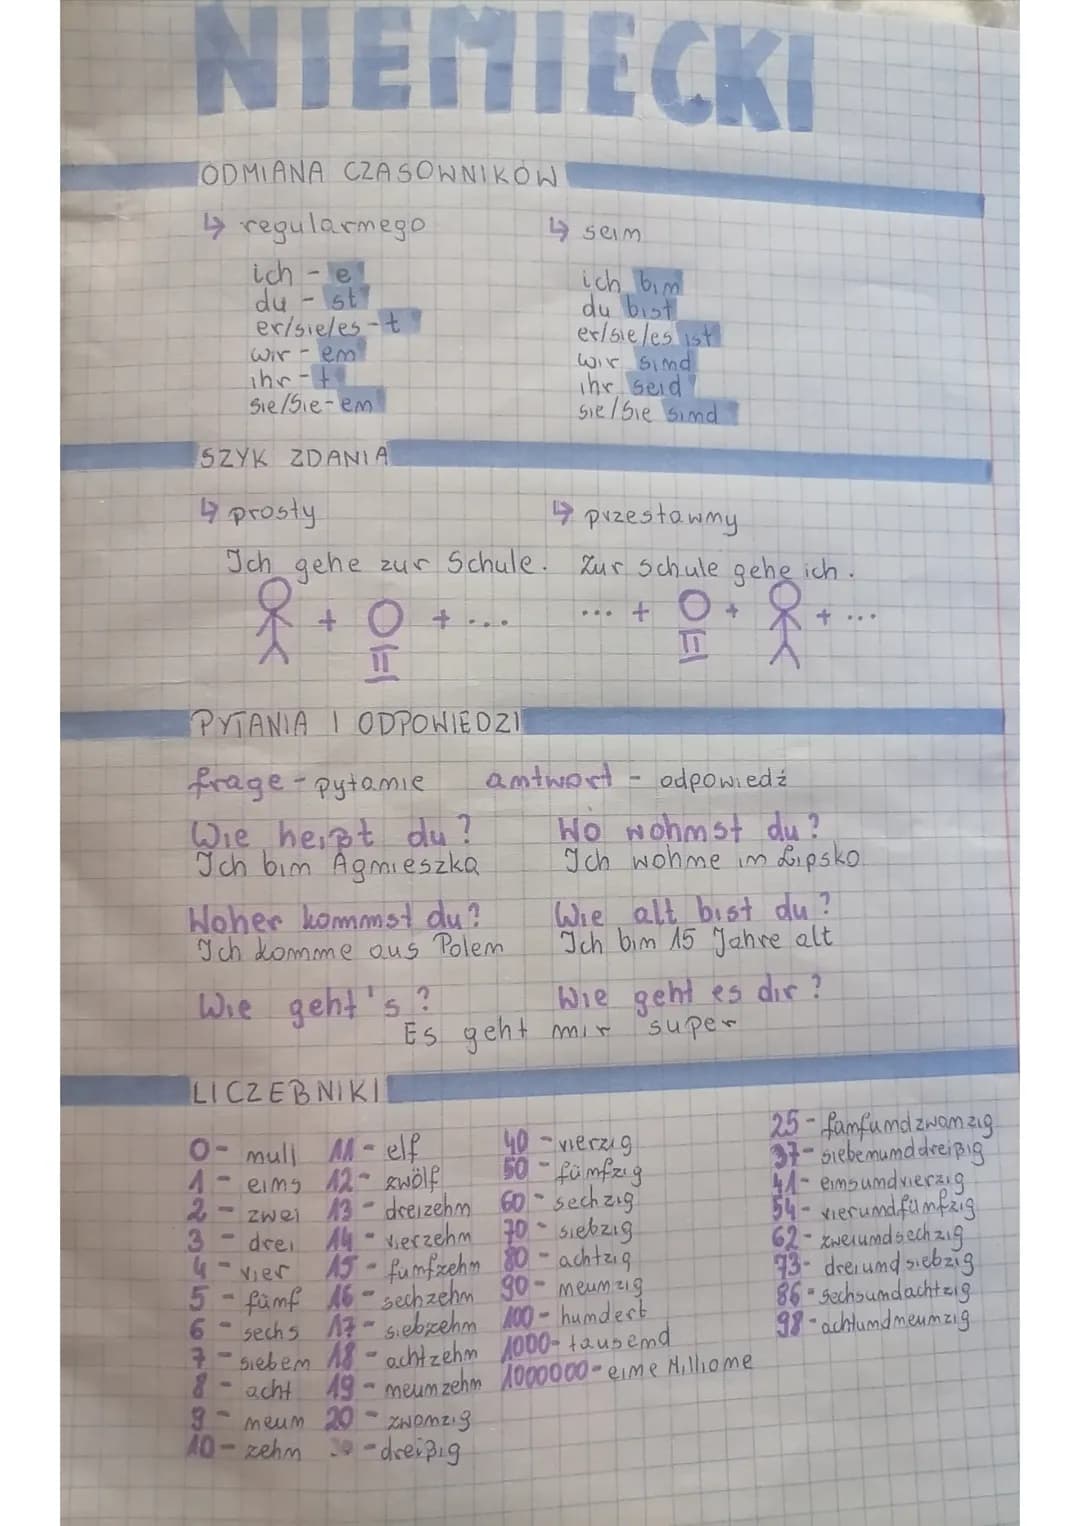 NIEMIECKI
ODMIANA CZASOWNIKÓW
↳ regularnego
ich - e
du - st
er/sie/es - t
wir - en
ihr - t
sie/Sie - en
↳ sein
ich bin
du bist
er/sie/es ist
wir sind
ihr seid
sie/Sie sind
SZYK ZDANIA
↳ prosty
Ich gehe zur Schule.
+ + ...
II
↳ przestawny
Zur Schule gehe ich.
... + + + ...
II
PYTANIA I ODPOWIEDZI
frage - pytanie antwort - odpowiedź
Wie heißt du?
Ich bin Agnieszka
Wo wohnst du?
Ich wohne in Lipsko
Woher kommst du?
Ich komme aus Polen
Wie alt bist du?
Ich bin 15 Jahre alt
Wie geht's? Wie geht es dir?
Es geht mir super
LICZEBNIKI
0 - null
1 - eins
2 - zwei
3 - drei
4 - vier
5 - fünf
6 - sechs
7 - sieben
8 - acht
9 - neun
10 - zehn
11 - elf
12 - zwölf
13 - dreizehn
14 - vierzehn
15 - funfzehn
16 - sechzehn
17 - siebzehn
18 - achtzehn
19 - neunzehn
20 - zwanzig
30 - dreißig
40 - vierzig
50 - fünfzig
60 - sechzig
70 - siebzig
80 - achtzig
90 - neunzig
100 - hundert
1000 - tausend
1000000 - eine Millione
25 - fanfundzwanzig
37 - siebenunddreißig
41 - einsundvierzig
54 - vierundfünfzig
62 - zweiundsechzig
73 - dreiundsiebzig
86 - sechsundachtzig
98 - achtundneunzig